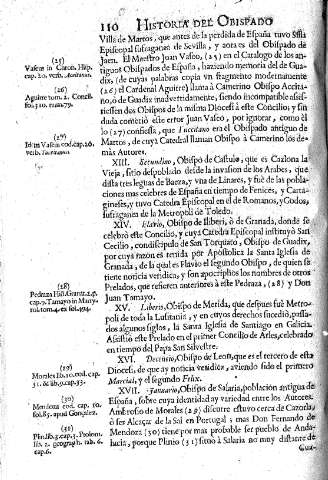 110 HISTORIA DEL OBISPADO
Villa de Martos, que antes de la perdida de España tuvo Silla
Episcopal sufraganea de Sevilla, y aora es del Obispado de
Jaen. El Maestro Juan Vaseo, (25) en el Catalogo de los antiguos
Obispados de España, haziendo memoria del de Guadix
(de cuyas palabras copia vn fragmento modernamente
(26) el Cardenal Aguirre) llama à Camerino Obispo Accitano,
ò de Guadix inadvertidamente, siendo incompatible assistiessen
dos Obispos de la misma Diocesi à este Concilio, y sin
duda cometiò este error Juan Vaseo, por ignorar, como èl
lo (27) confiessa, que Tuccitano era el Obispado antiguo de
Martos, de cuya Catedral llaman Obispo à Camerino los demàs
Autores.
XIII. Secundino, Obispo de Castulo, que es Cazlona la
Vieja, sitio despoblado desde la invasion de los Arabes, que
dista tres leguas de Baeza, y vna de Linares, y fuè de las poblaciones
mas celebres de España en tiempo de Fenices, y Cartagineses,
y tuvo Catedra Episcopal en el de Romanos, y Godos,
sufraganea de la Metropoli de Toledo.
XIV. Flavio, Obispo de Iliberi, ò de Granada, donde se
celebrò este Concilio, y cuya Catedra Episcopal instituyò San
Cecilio, condiscipulo de San Torquato, Obispo de Guadix,
por cuya razon es tenida por Apostolica la Santa Iglesia de
Granada, de la qual es Flavio el segundo Obispo, de quien se
tiene noticia veridica, y son apocriphos los nombres de otros
Prelados, que refieren anteriores à este Pedraza, (28) y Don
Juan Tamayo.
XV. Liberio, Obispo de Merida, que despues fuè Metropoli
de toda la Lusitania, y en cuyos derechos sucediò, passados
algunos siglos, la Santa Iglesia de Santiago en Galicia.
Assistiò este Prelado en el primer Concilio de Arlès, celebrado
en tiempo del Papa San Silvestre.
XVI. Decencio, Obispo de Leon, que es el tercero de esta
Diocesi, de que ay noticia veridica, aviendo sido el primero
Marcial, y el segundo Felix.
XVII. Januario, Obispo de Salaria, poblacion antigua de
España, sobre cuya identidad ay variedad entre los Autores.
Ambrosio de Morales (29) discurre estuvo cerca de Cazorla,
ò ser Alcazar de la Sal en Portugal; mas Don Fernando de
Mendoza (30) tiene por mas probable ser pueblo de Andalucia,
posque Plinio (31) situò à Salaria no muy distante de
Gua-
(25)
Vaseus in Catron. Hisp.
cap. 20. verb.
(26)
Aguirre tom. 2. Concil.
(27)
Joan Vaseus eod. cap. 20.
verb.
(28)
Pedraza Hist. Granat. 2. p.
cap. 7. Tamayo in Martyrol.
tom. 4. ex fol. 194.
(29)
Morales lib. 10. cod. cap.
31. & lib. 9. cap. 33.
(30)
Mendoza cod. cap. 10.
fol. 85. apud Gonçalez.
(31)
Plin. lib. 3. cap. 3. Ptolom.
lib. 2. geograph. tab. 6.
cap. 6.